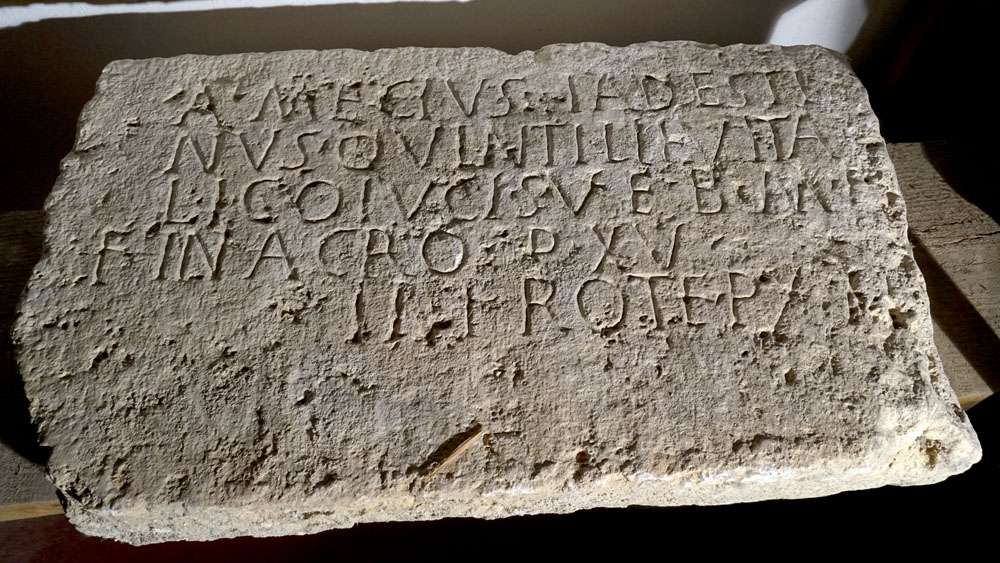 A MECIVS IADESTI
NVS QVINTILIE VITA
LI COIVCI SVE B M
F IN ACRO P XV
III FRO TE P